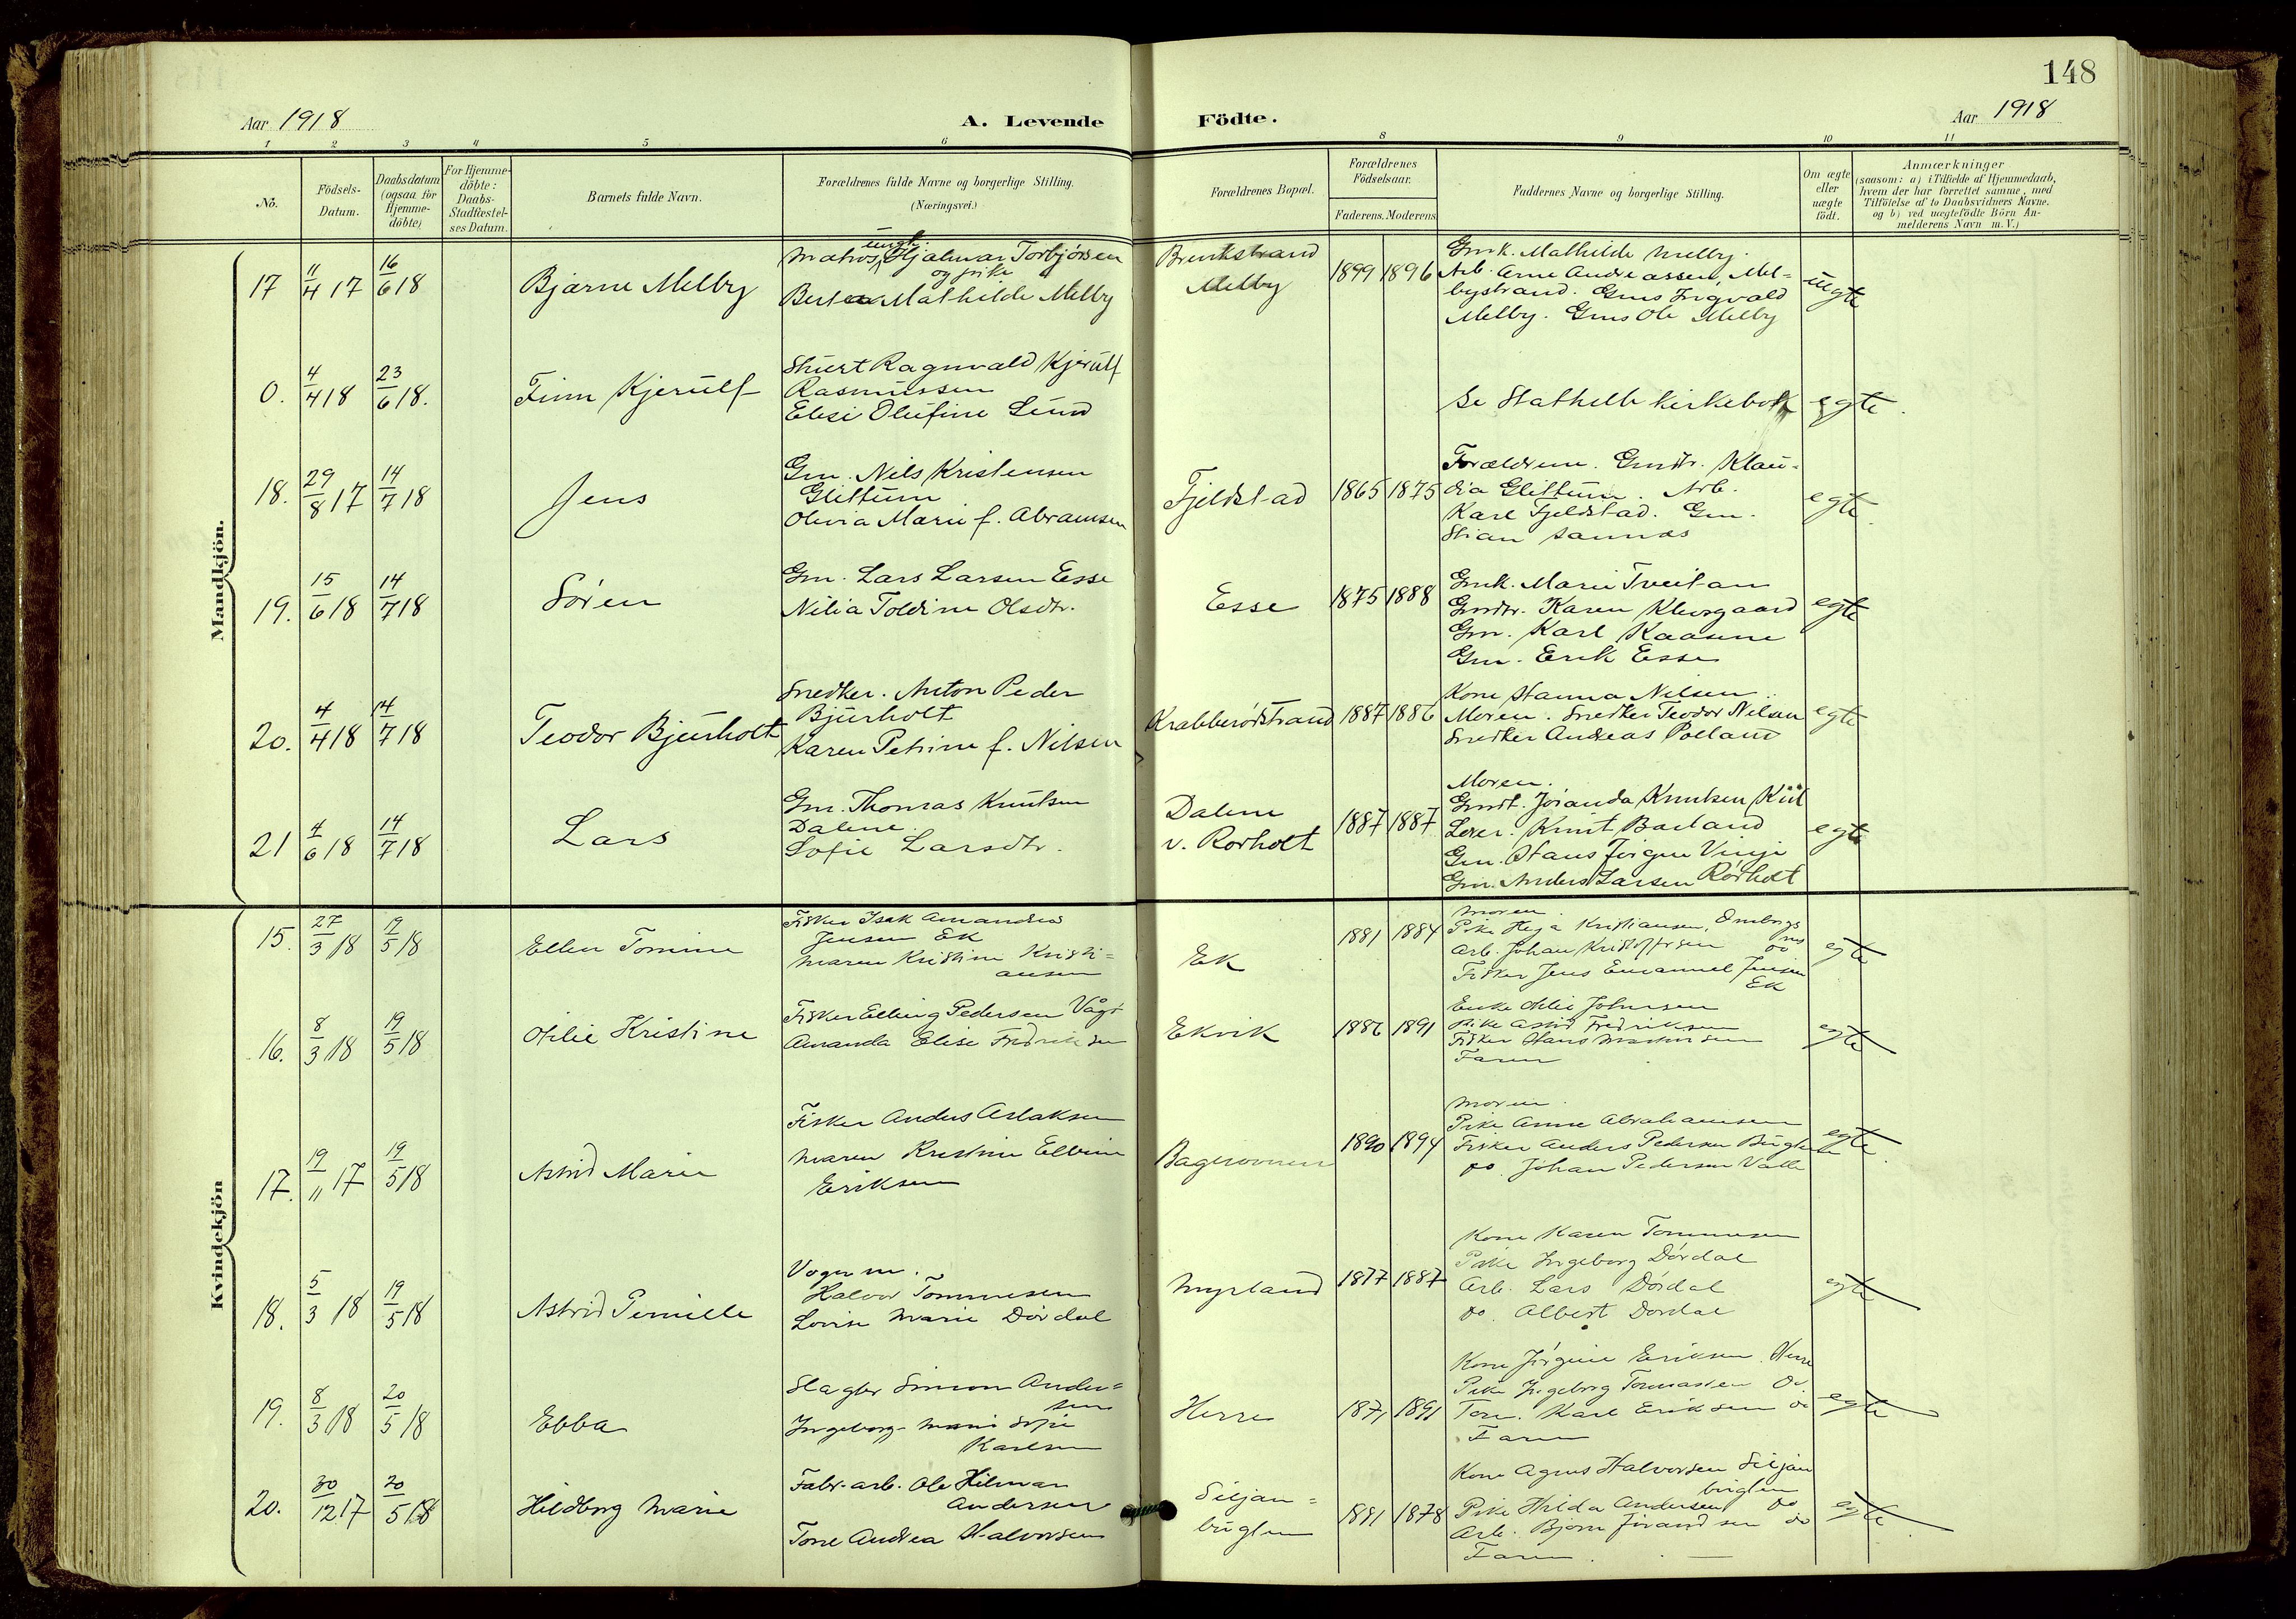 148
Aar 1918
A. Levende
Födte.
Aar 1918
1 2 3 4 5 6 8 9 10 11
No.
Födsels-
Datum.
Daabsdatum
(ogsaa för
Hjemme-
döbte)
For Hjemme-
döbte:
Daabs-
Stadfæstel-
ses Datum.
Barnets fulde Navn.
Forældrenes fulde Navne og borgerlige Stilling.
(Næringsvei.)
Forældrenes Bopæl.
Forældrenes
Födselsaar.
Faderens. Moderens
Faddernes Navne og borgerlige Stilling.
Om ægte
eller
uægte
födt.
Anmærkninger
(saasom: a) i Tilfælde af Hjemmedaab,
hvem der har forrettet samme, med
Tilföielse af to Daabsvidners Navne.
og b) ved uægtefödte Börn An-
melderens Navn m.V.)
Mandkjön.
17 11/4 17 16/6 18
Bjarne Melby
ungk.
Matros Hjalmar Torbjørsen
og pike
Berta Mathilde Melby
Melby
1899 1896
Gmk. Mathilde Melby.
Arb. Arne Andreassen, Mel-
bystrand. Gms Ingvald
Melby. Gms Ole Melby
uegte
0. 4/4 18 23/6 18.
Finn Kjerulf
Ragnvald Kjerulf
Rasmussen
Elise Olufine Lund
Se Stathelle kirkebok
egte.
18. 29/8 17 14/7 18
Jens
Gm. Nils Kristensen
Glittum
Olivia Marie f. Abramsen
Fjeldstad
1865 1875
Forældrene. Gmdtr. Klau-
dia Glittum. Arb.
Karl Fjeldstad. Gm.
Stian Sannes
egte.
19. 15/6 18 14/7 18
Sören
Gm. Lars Larsen Esse
Nilia Toldine Olsdtr.
Esse
1875 1888
Gmk. Marie Tveitan
Gmdtr. Karen Klevgaard
Gm. Karl Kaasene
Gm. Erik Esse
egte
20. 4/4 18 14/7 18
Teodor Bjurholt
Snedker. Anton Peder
Bjurholt
Karen Petrine f. Nilsen
Krabberødstrand
1887 1886
Kone Hanna Nilsen.
Moren. Snedker Teodor Nilsen
Snedker Andreas
egte
21 4/6 18 14/7 18
Lars
Gm. Thomas Knutsen
Dalene.
Sofie Larsdtr.
Dalene
v. Rørholt
1887 1887
Moren.
Gmdt. Jøranda Knutsen Kiil
Lærer. Knut Barland
Gm. Hans Jørgen Vinje
Gm. Anders Larsen Rørholt
egte
Kvindekjön
15. 27/3 18 19/5 18
Ellen Tomine
Fisker Isak Amandus
Jensen Ek
Maren Kristine Kristi-
ansen
Ek
1881 1884
Moren.
Pike Kristiansen,
Arb. Johan Kristoffersen do
Fisker Jens Emanuel Jensen
Ek
egte
16. 8/3 18 19/5 18
Otilie Kristine
Fisker Elling Pedersen
Amanda Elise Fredriksen
Ekvik
1886 1891
Enke Otilie Johnsen
Pike Astrid Fredriksen
Fisker Hans
Faren
egte
17. 19/11 17 19/5 18
Astrid Marie
Fisker Anders Aslaksen
Maren Kristine Elvine
Eriksen
1890 1894
Moren.
Pike Anne Abrahamsen
Fisker Anders Pedersen
do. Johan Pedersen Valle
egte.
18. 5/3 18 19/5 18
Astrid Pernille
Vogn m.
Halvor Tommesen
Lovise Marie Dördal
Myrland
1877 1887
Kone Karen Tommesen
Pike Ingeborg Dördal
Arb. Lars Dördal
do. Albert Dordal
egte
19. 8/3 18 20/5 18
Ebba
Slagter Simon Ander-
sen
Ingeborg Marie Sofie
Karlsen
Herre
1871 1891
Kone Jörgine Eriksen. Herre
Pike Ingeborg Tomassen do.
Karl Eriksen do
Faren
egte
20. 30/12 17 20/5 18
Hildborg Marie
Fabr.arb. Ole Hilmar
Andersen
Tone Andrea Halvorsen
Siljan-
buglen
1891 1878
Kone Agnes Halvorsen Siljan
buglen
Pike Hilda Andersen do
Arb. Bjorn do
Faren.
egte.